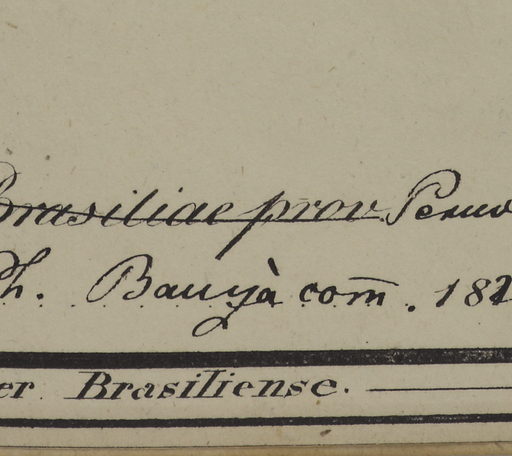 Brasiliae prov Peruv
Ph. Bauyà com̄. 182
er Brasiliense.